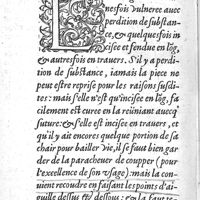 nesfois vulneree auec
perdition de substan-
ce, & quelquesfois in
cisee et fendue en lõg,
& autresfois en trauers. S'il y a perdi-
tion de substãce, iamais la piece ne
peut estre reprise pour les raisons susdi-
tes: mais s'elle n'est qu'incisee en lõg, fa-
cilement est curee en la reüniant auecq'
suture: & s'elle est incisee en trauers, et
qu'il y ait encores quelque portion de sa
chair pour bailler vie, il se faut bien gar-
der de la paracheuer de coupper (pour
l'excellence de son vsage): mais la con-
uient recoudre en faisant les points d'ai-
guille dessus & dessous: & la faut te